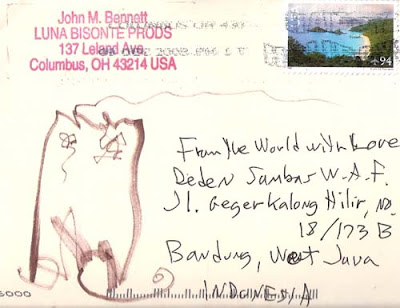 John M. Bennett
LUNA BISONTE PRODS
137 Leland Ave.
Columbus, OH 43214 USA
COLUMBUS OH 430
2008 PM 1 T
94
From the World with Love
Deden Sambas W.A.F.
Jl. Geger Kalong Hilir, No.
18/173 B
Bandung, West Java
INDONESIA
5000